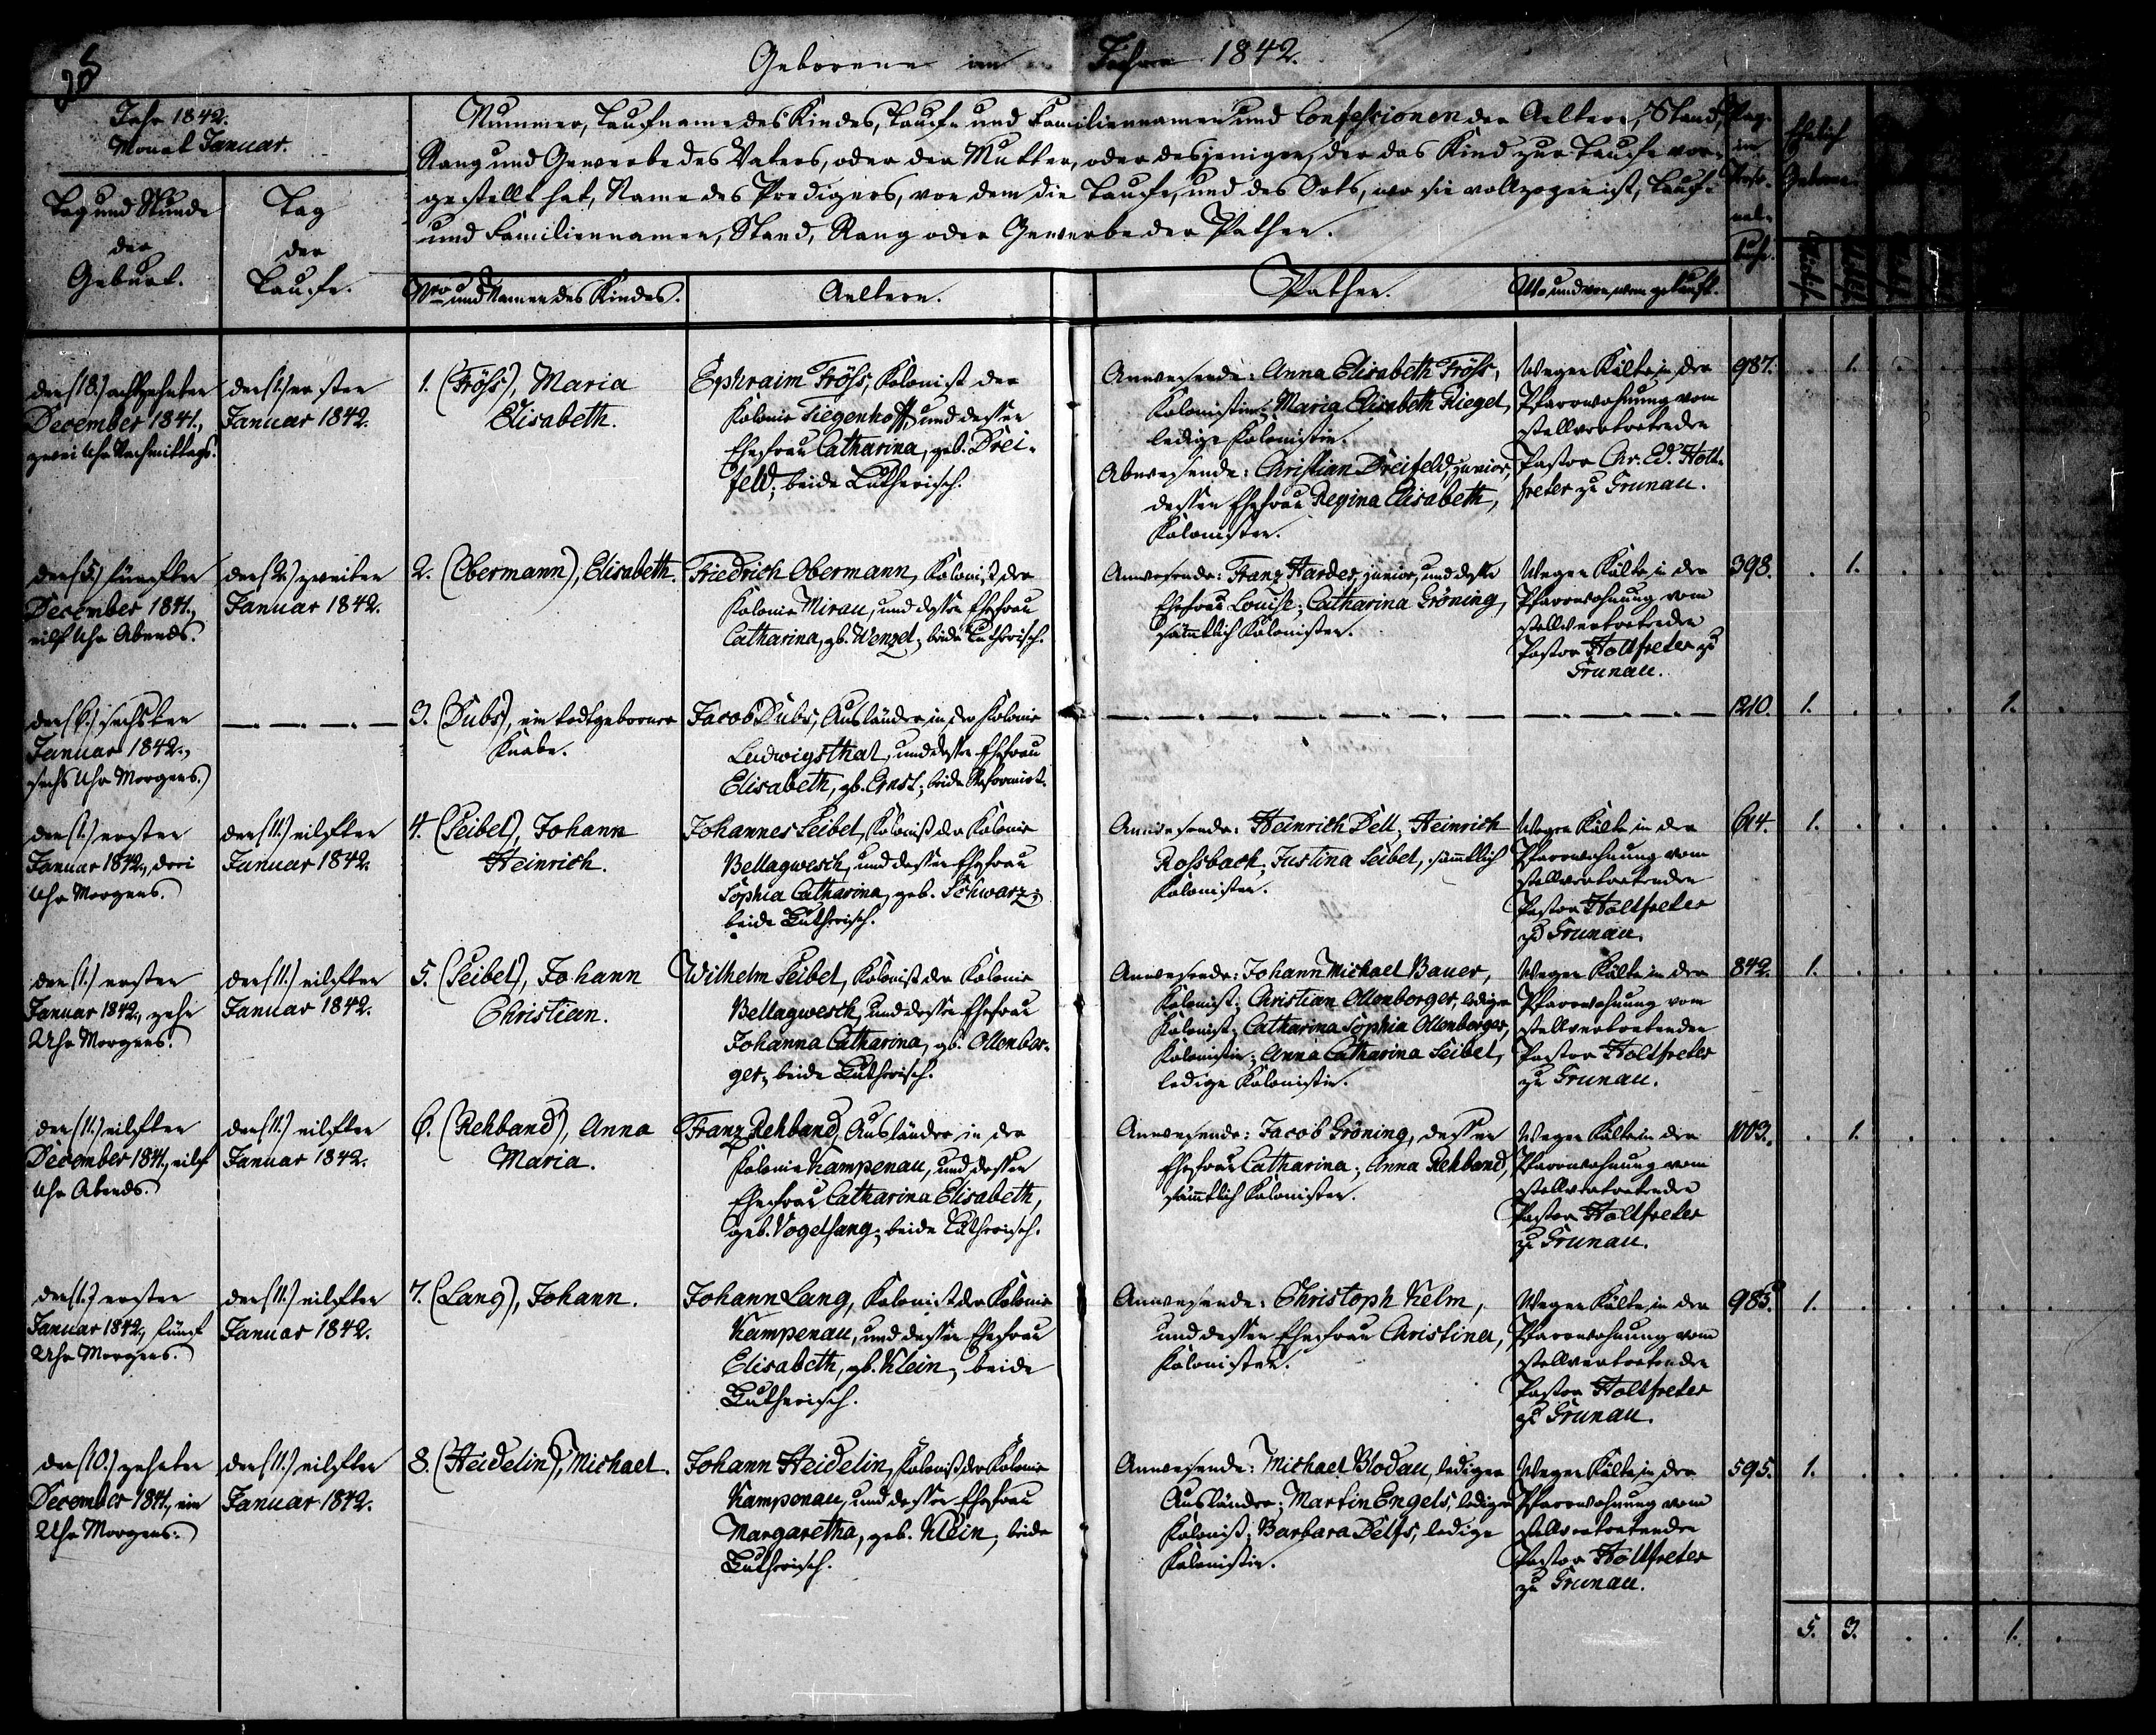 Geborene im Jahre 1842.
Jahr 1842.
Monat Januar.
Tag und Stunde
der
Geburt.
Tag
der
Taufe.
Nummer, Taufname des Kindes, Tauf- und Familiennamen und Confessionen der Aeltern, Stand,
Rang und Gewerbe des Vaters, oder der Mutter, oder desjenigen, der das Kind zur Taufe vor-
gestellt hat, Name des Predigers, von dem die Taufe, und des Orts, wo sie vollzogen ist, Tauf-
und Familiennamen, Stand, Rang oder Gewerbe der Pathen.
Nro und Namen des Kindes.
Aeltern.
Pathen.
Wo und von wem getauft.
Pag.
im
Perso-
nal-
Buche.
Ehelich
Geborne.
den (18.) achtzehnten
December 1841.,
zwei Uhr Nachmittags.
den (1.) ersten
Januar 1842.
1. (Fröhs), Maria
Elisabeth.
Ephraim Fröhs, Kolonist der
Kolonie Tiegenhoff, und dessen
Ehefrau Catharina, geb. Drei-
feld; beide Lutherisch.
Anwesende: Anna Elisabeth Fröhs,
Kolonistin; Maria Elisabeth Riegel,
ledige Kolonistin.
Abwesende: Christian Dreifeld, junior,
dessen Ehefrau Regina Elisabeth,
Kolonisten.
Wegen Kälte in der
Pfarrwohnung vom
stellvertretenden
Pastor Chr. Ed. Holt-
freter zu Grunau.
987. . 1. .
den (5.) fünften
December 1841.,
eilf Uhr Abends.
den (2.) zweiten
Januar 1842.
2. (Obermann), Elisabeth.
Friedrich Obermann, Kolonist der
Kolonie Mirau, und dessen Ehefrau
Catharina, gb. Wenzel; beide Lutherisch.
Anwesende: Franz Harder, junior, und dessen
Ehefrau Louise; Catharina Gröning,
sämtlich Kolonisten.
Wegen Kälte in der
Pfarrwohnung vom
stellvertretenden
Pastor Holtfreter zu
Grunau.
398. . 1. .
den (6.) sechsten
Januar 1842.,
sechs Uhr Morgens.
3. (Dubs), ein todtgeborner
Knabe.
Jacob Dubs, Ausländer in der Kolonie
Ludwigsthal, und dessen Ehefrau
Elisabeth, gb. Ernst; beide Reformirt.
1210. 1. . . . 1. .
den (1.) ersten
Januar 1842., drei
Uhr Morgens.
den (11.) eilften
Januar 1842.
4. (Seibel), Johann
Heinrich.
Johannes Seibel, Kolonist der Kolonie
Bellagwesch, und dessen Ehefrau
Sophia Catharina, geb. Schwarz;
beide Lutherisch.
Anwesende: Heinrich Dell; Heinrich
Rossbach; Justina Seibel, sämtlich
Kolonisten.
Wegen Kälte in der
Pfarrwohnung vom
stellvertretenden
Pastor Holtfreter
zu Grunau.
614. 1. . . . . .
den (1.) ersten
Januar 1842., zehn
Uhr Morgens.
den (11.) eilften
Januar 1842.
5. (Seibel), Johann
Christian.
Wilhelm Seibel, Kolonist der Kolonie
Bellagwesch, und dessen Ehefrau
Johanna Catharina, gb. Ollenbor-
ger; beide Lutherisch.
Anwesende: Johann Michael Bauer,
Kolonist; Christian Ollenborger, lediger
Kolonist; Catharina Sophia Ollenborger,
Kolonistin; Anna Catharina Seibel,
ledige Kolonistin.
Wegen Kälte in der
Pfarrwohnung vom
stellvertretenden
Pastor Holtfreter
zu Grunau.
842. 1. . . . . .
den (11.) eilften
December 1841., eilf
Uhr Abends.
den (11.) eilften
Januar 1842.
6. (Rehband), Anna
Maria.
Franz Rehband, Ausländer in der
Kolonie Kampenau, und dessen
Ehefrau Catharina Elisabeth,
geb. Vogelsang; beide Lutherisch.
Anwesende: Jacob Gröning, dessen
Ehefrau Catharina; Anna Rehband,
sämtlich Kolonisten.
Wegen Kälte in der
Pfarrwohnung vom
stellvertretenden
Pastor Holtfreter
zu Grunau.
1003. . 1. . . . .
den (1.) ersten
Januar 1842., fünf
Uhr Morgens.
den (11.) eilften
Januar 1842.
7. (Lang), Johann.
Johann Lang, Kolonist der Kolonie
Kampenau, und dessen Ehefrau
Elisabeth, gb. Klein; beide
Lutherisch.
Anwesende: Christoph Kelm,
und dessen Ehefrau Christina,
Kolonisten.
Wegen Kälte in der
Pfarrwohnung vom
stellvertretenden
Pastor Holtfreter
zu Grunau.
985. 1. . . . . .
den (10.) zehnten
December 1841., ein
Uhr Morgens.
den (11.) eilften
Januar 1842.
8. (Heidelin), Michael.
Johann Heidelin, Kolonist der Kolonie
Kampenau, und dessen Ehefrau
Margaretha, geb. Klein; beide
Lutherisch.
Anwesende: Michael Blodau, lediger
Ausländer; Martin Engels, lediger
Kolonist; Barbara Delfs, ledige
Kolonistin.
Wegen Kälte in der
Pfarrwohnung vom
stellvertretenden
Pastor Holtfreter
zu Grunau.
595. 1. . . . . .
5. 3. . . 1. .